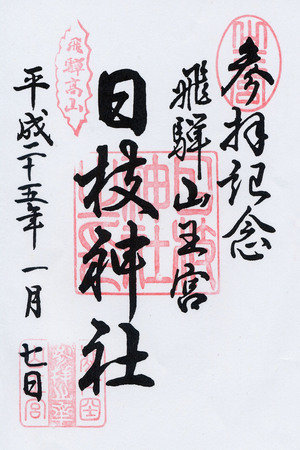 参拝記念
飛騨山王宮
日枝神社
飛騨高山
平成二十五年一月七日